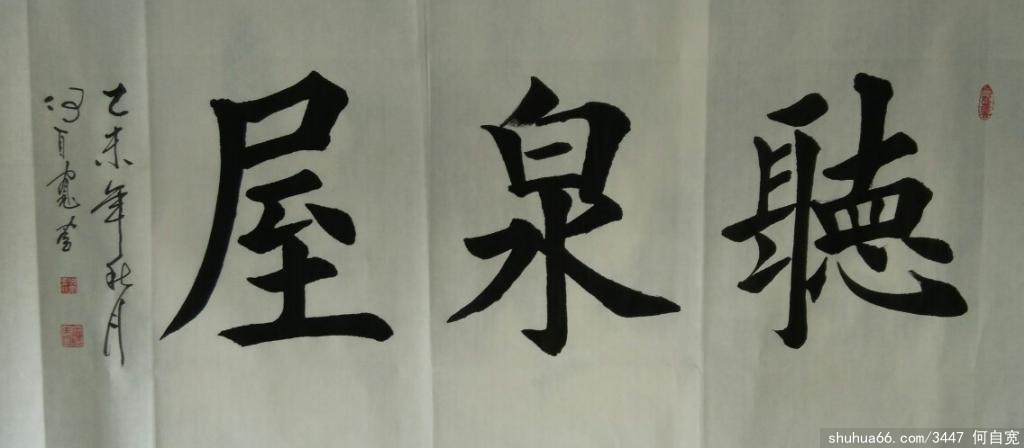 聽泉屋
乙未年秋月
何自寬書
shuhua66.com/3447 何自宽